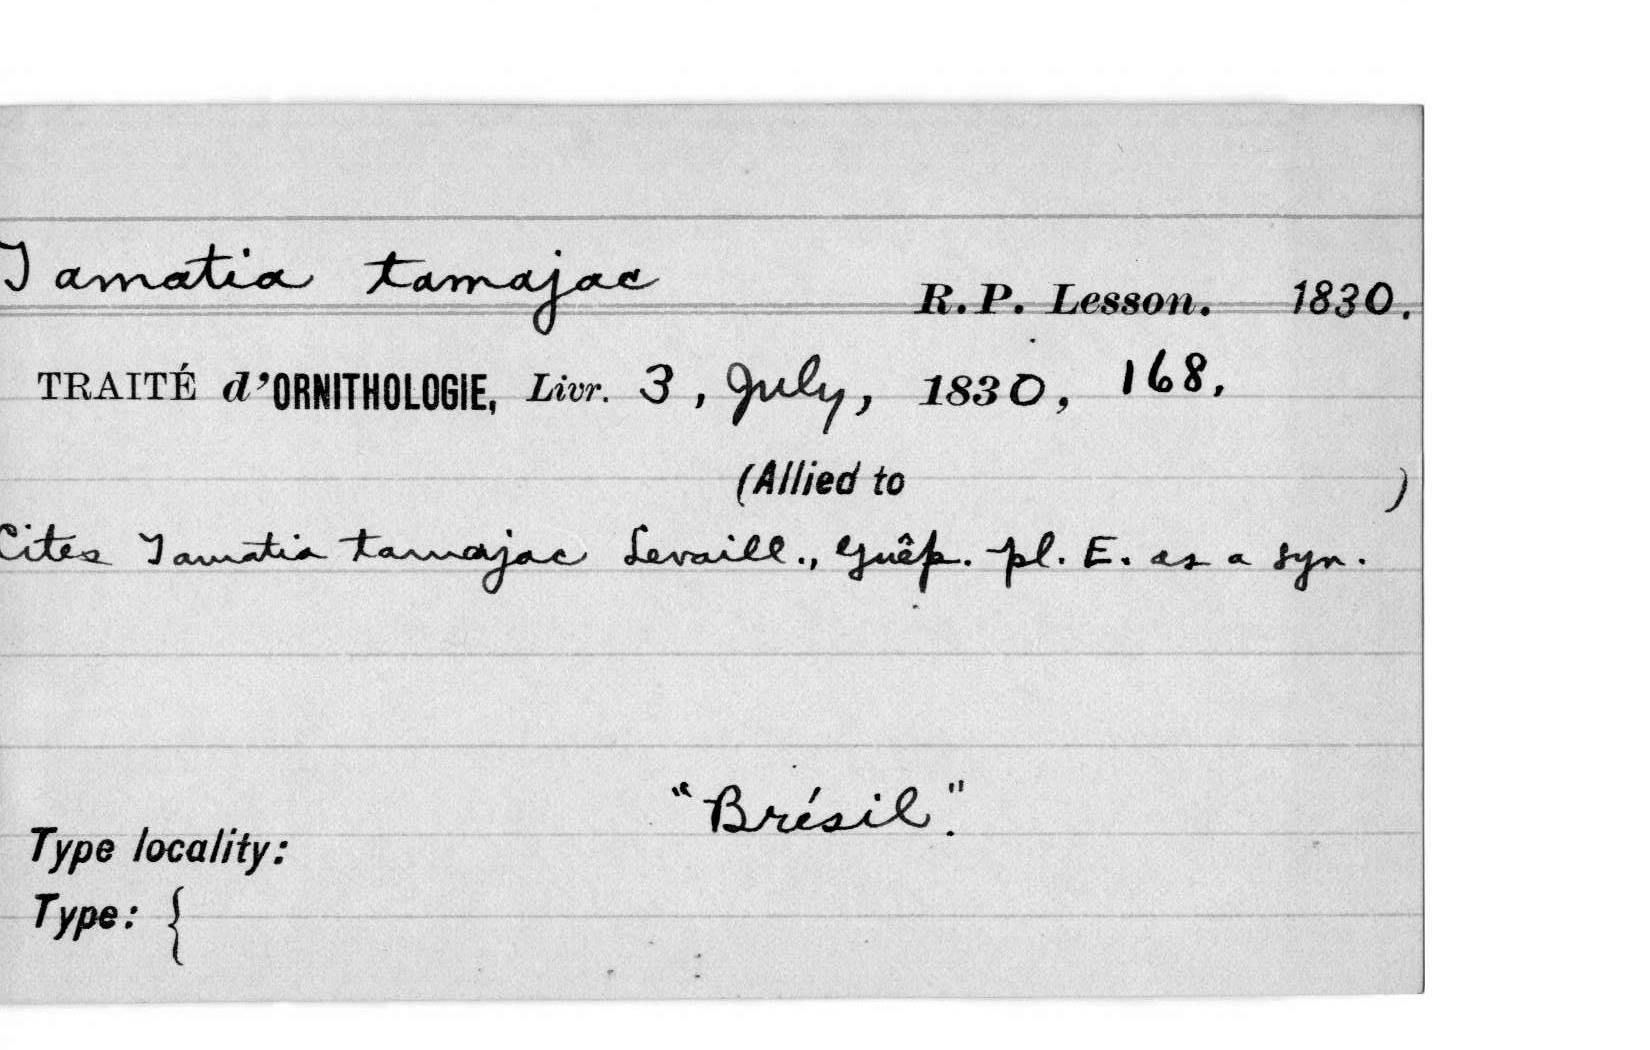 Tamatia tamajac
R.P. Lesson. 1830.
TRAITÉ d'ORNITHOLOGIE, Livr. 3, July, 1830, 168.
(Allied to )
Cites Tamatia tamajac Levaill., Guêp. pl. E. as a syn.
"Brésil."
Type locality:
Type: {